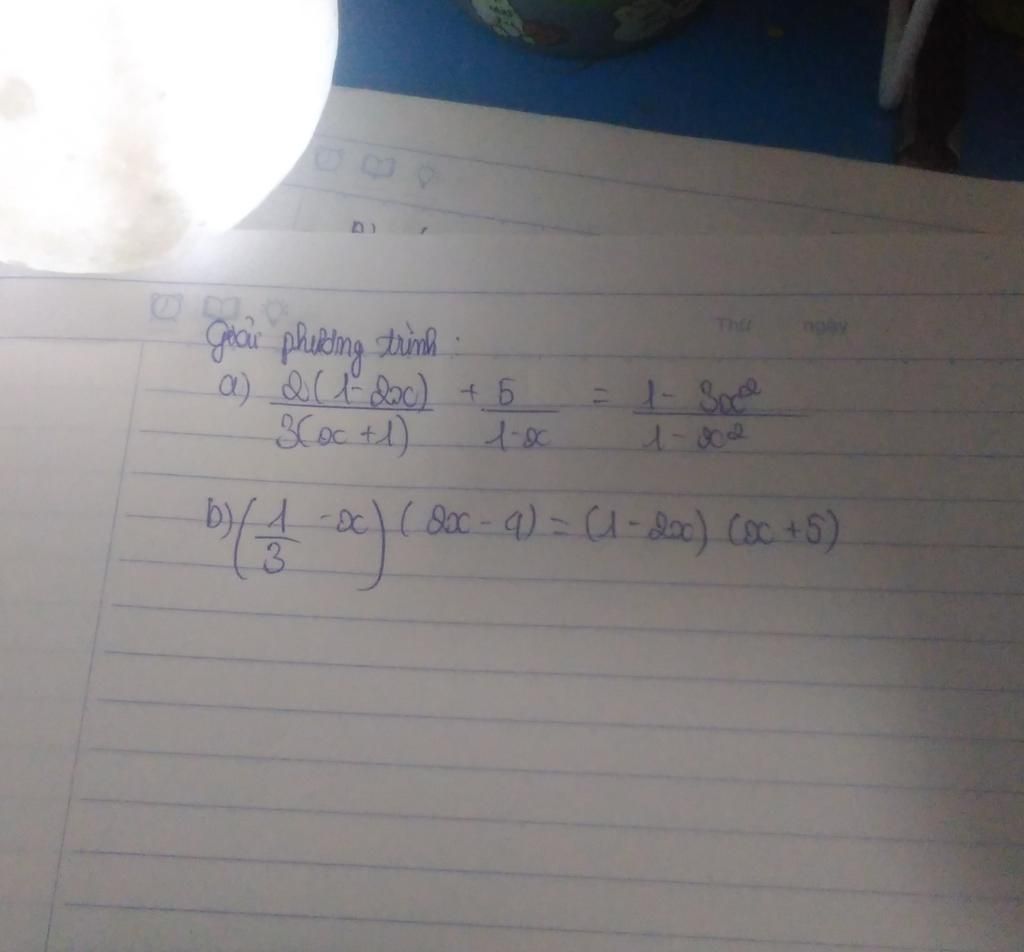 Thứ ngày
Giải phương trình:
a) \frac{2(1-2x)}{3(x+1)} + \frac{5}{1-x} = \frac{1-3x^2}{1-x^2}
b) (\frac{1}{3} - x)(2x - 9) = (1-2x)(x+5)